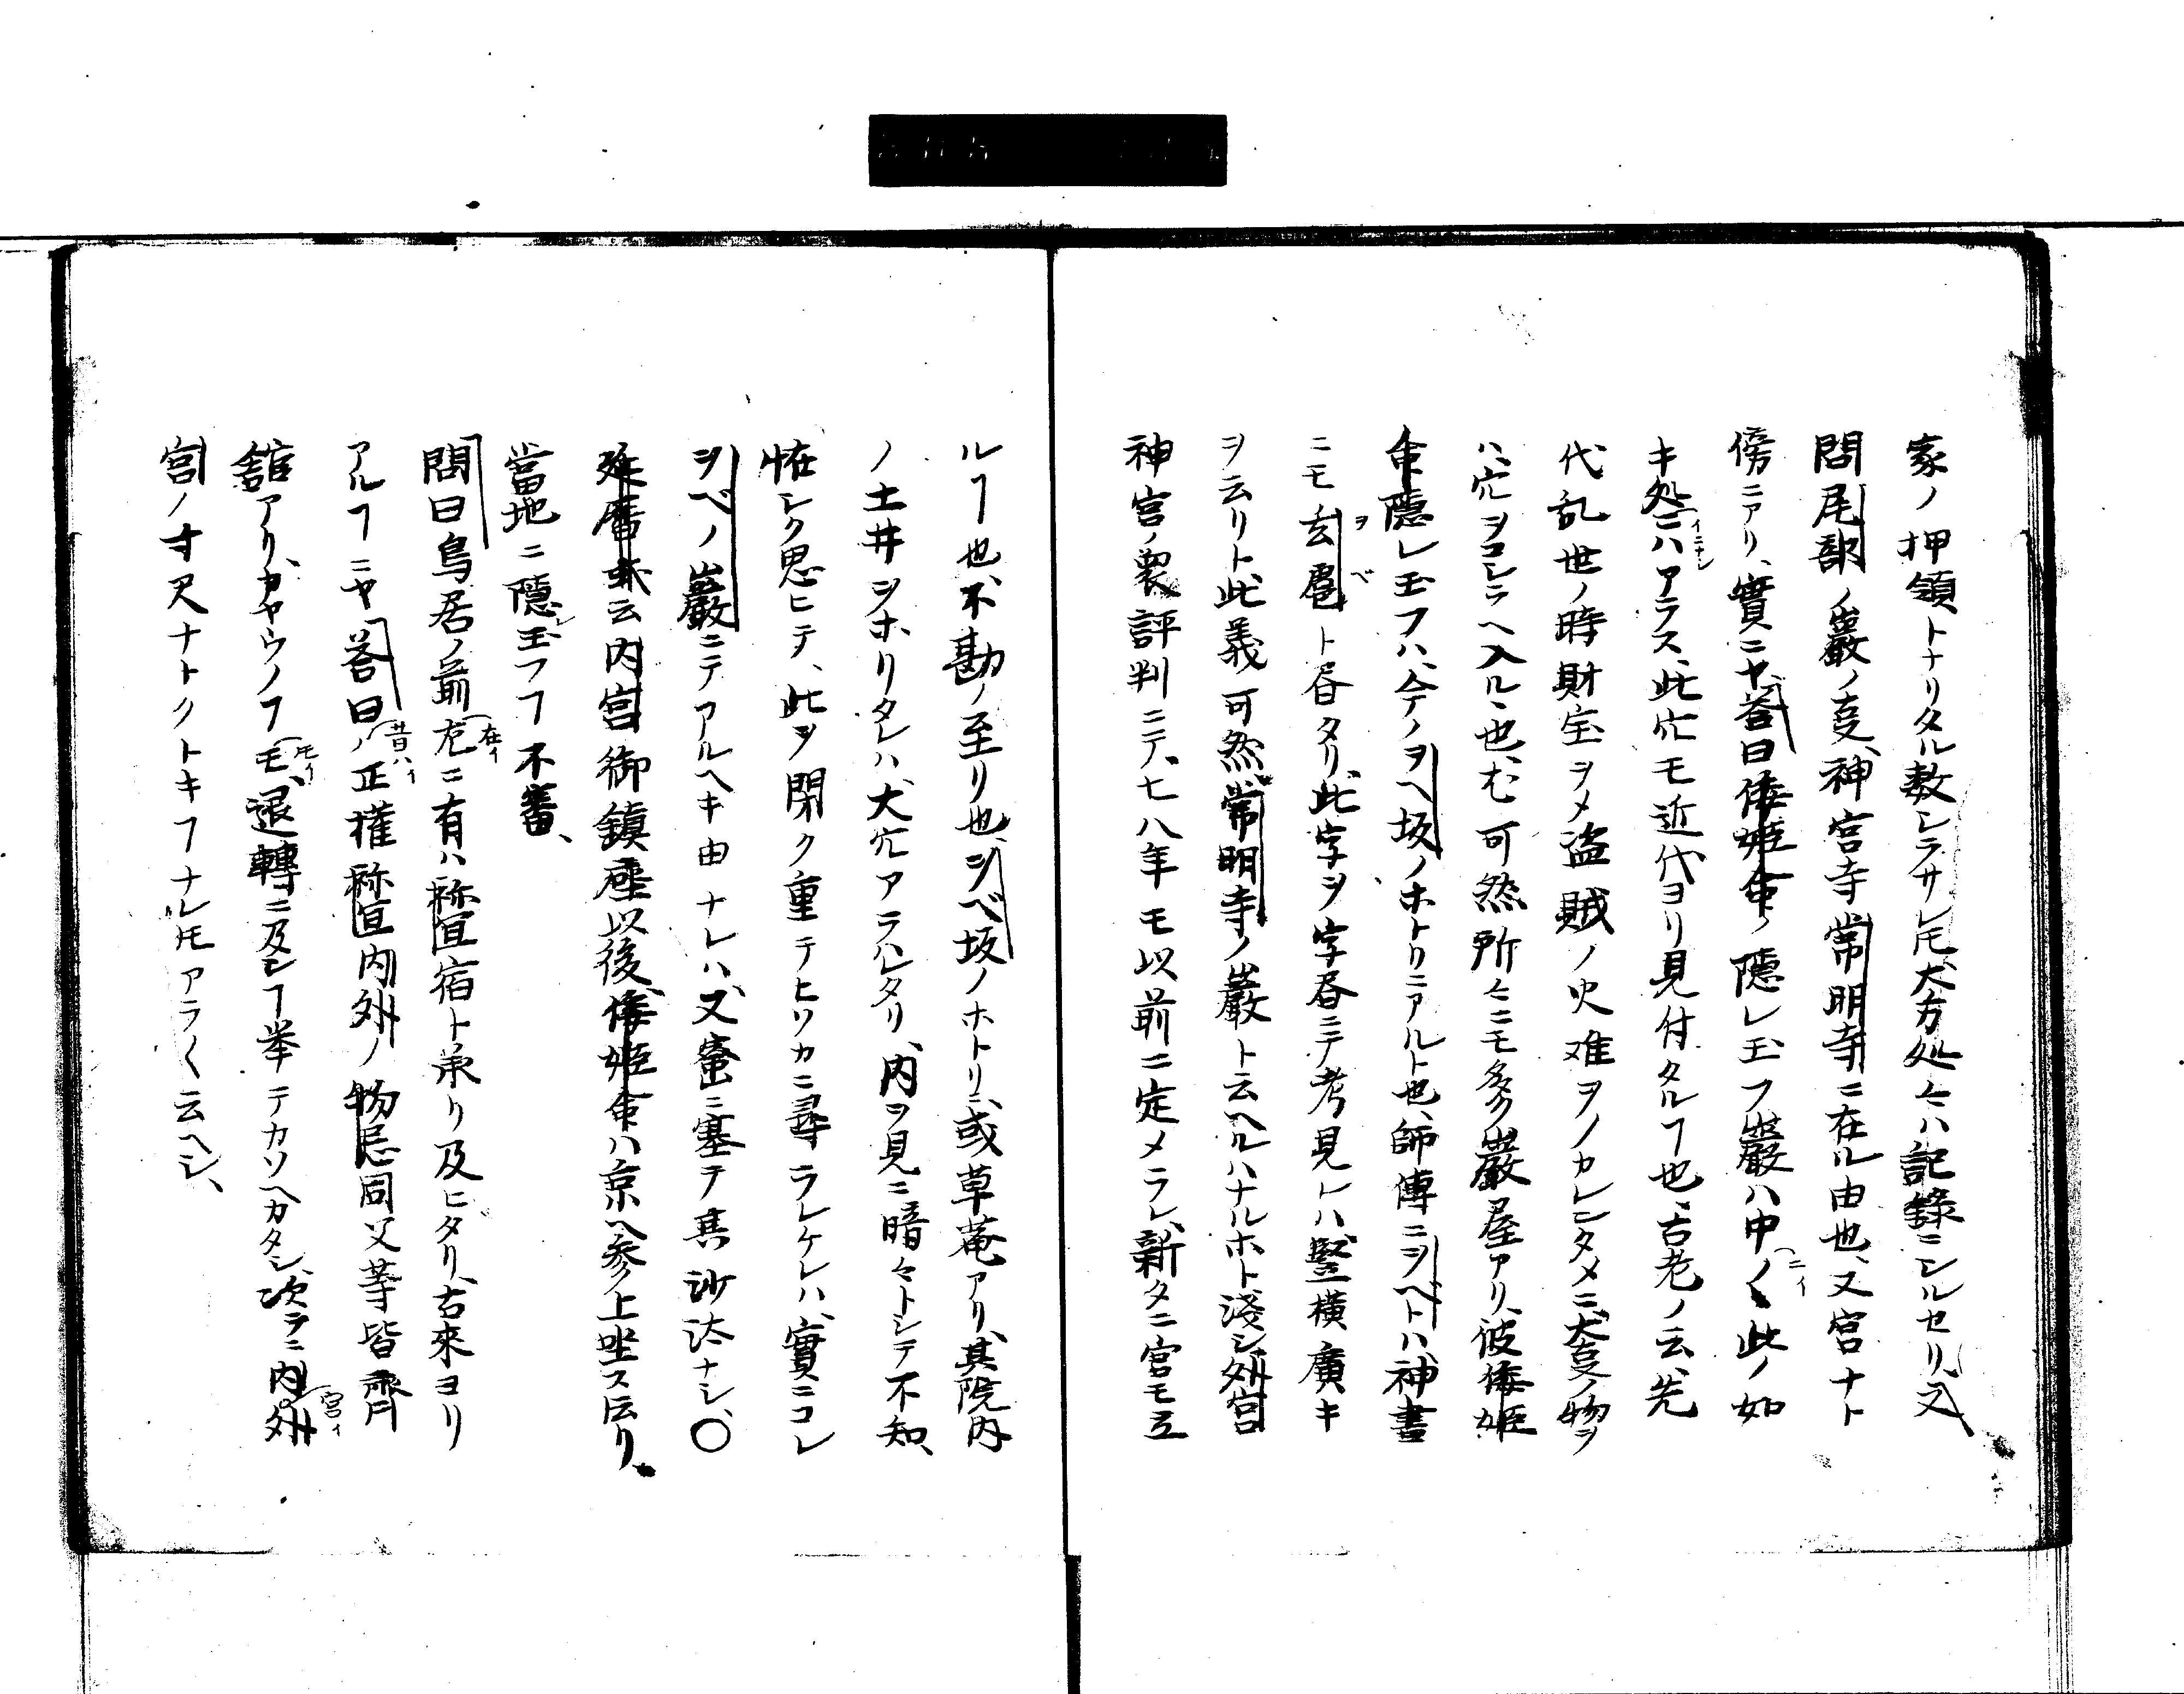 家ノ押領トナリタル敷シラサレ𪜈大方処々ニハ記錄ニシルセリ、又
問尾部ノ巖ノ叓、神宮寺常明寺ニ在ル由也、又宮ナト
傍ニアリ、實ニヤ、答曰倭姫命ノ隱レ玉フ巖ハ中〳〵此ノ如
キ処ニハアラス、此穴モ近代ヨリ見付タルヿ也、古老ノ云、先
代乱世ノ時財宝ヲメ盗賊ノ火难ヲノカレンタメニ、大叓ノ物ヲ
ハ穴ヲコシラヘ入ル、也、む可然所々ニモ多ク巖屋アリ、彼倭姫
命隱レ玉フハ、今ノヲヘ坂ノホトリニアルト也、師傳ニヲベトハ、神書
ニモ玄扈ト舂タリ、此字ヲ字舂ニテ考見レハ、竪横廣キ
ヲ云リト、此義可然、常明寺ノ巖ト云ヘルハナルホト淺シ、外宮
神宮ノ衆評判ニテ、七八年モ以前ニ定メラレ、新タニ宮モ立
ルヿ也、不勘ノ至リ也、ヲベ坂ノホトリニ、或草菴アリ、其院内
ノ土井ヲホリタレハ、大穴アラハレタリ、内ヲ見ニ暗々トシテ不知、
怪シク思ヒテ、此ヲ閉ク重テヒソカニ尋ラレケレハ、實ニコレ
ヲベノ巖ニテアルヘキ由ナレハ、又蜜ニ塞テ其沙汰ナシ、〇
延暦 云内宮御鎮座以後、倭姫命ハ京ヘ参上坐ス云リ、
當地ニ隱レ玉フヿ不審、
問曰鳥居ノ前左ニ有ハ祢宜宿ト承リ及ヒタリ、古來ヨリ
アルヿニヤ答曰ノ正権祢宜内外ノ物忌同父等皆齊
舘アリ、カヤウノヿモ、退轉ニ及シヿ挙テカソヘカタシ、次ラニ内外
宮ノ寸尺ナトクトキヿナレ𪜈アラ〳〵云ヘシ、